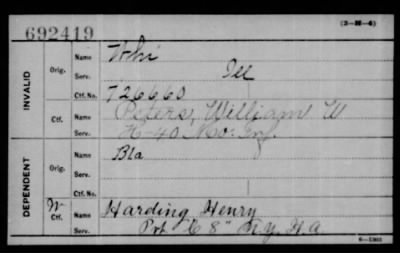 (3-M-6)
692419
INVALID
Orig.
Name Whi
Serv. Ill
Ctf. No. 726660
Ctf.
Name Peters, William W
Serv. H-40 Mo. Inf.
DEPENDENT
Orig.
Name Bla
Serv.
Ctf. No.
W
Ctf.
Name Harding Henry
Serv. Pvt C 8" N.Y. H.A.
6-1303